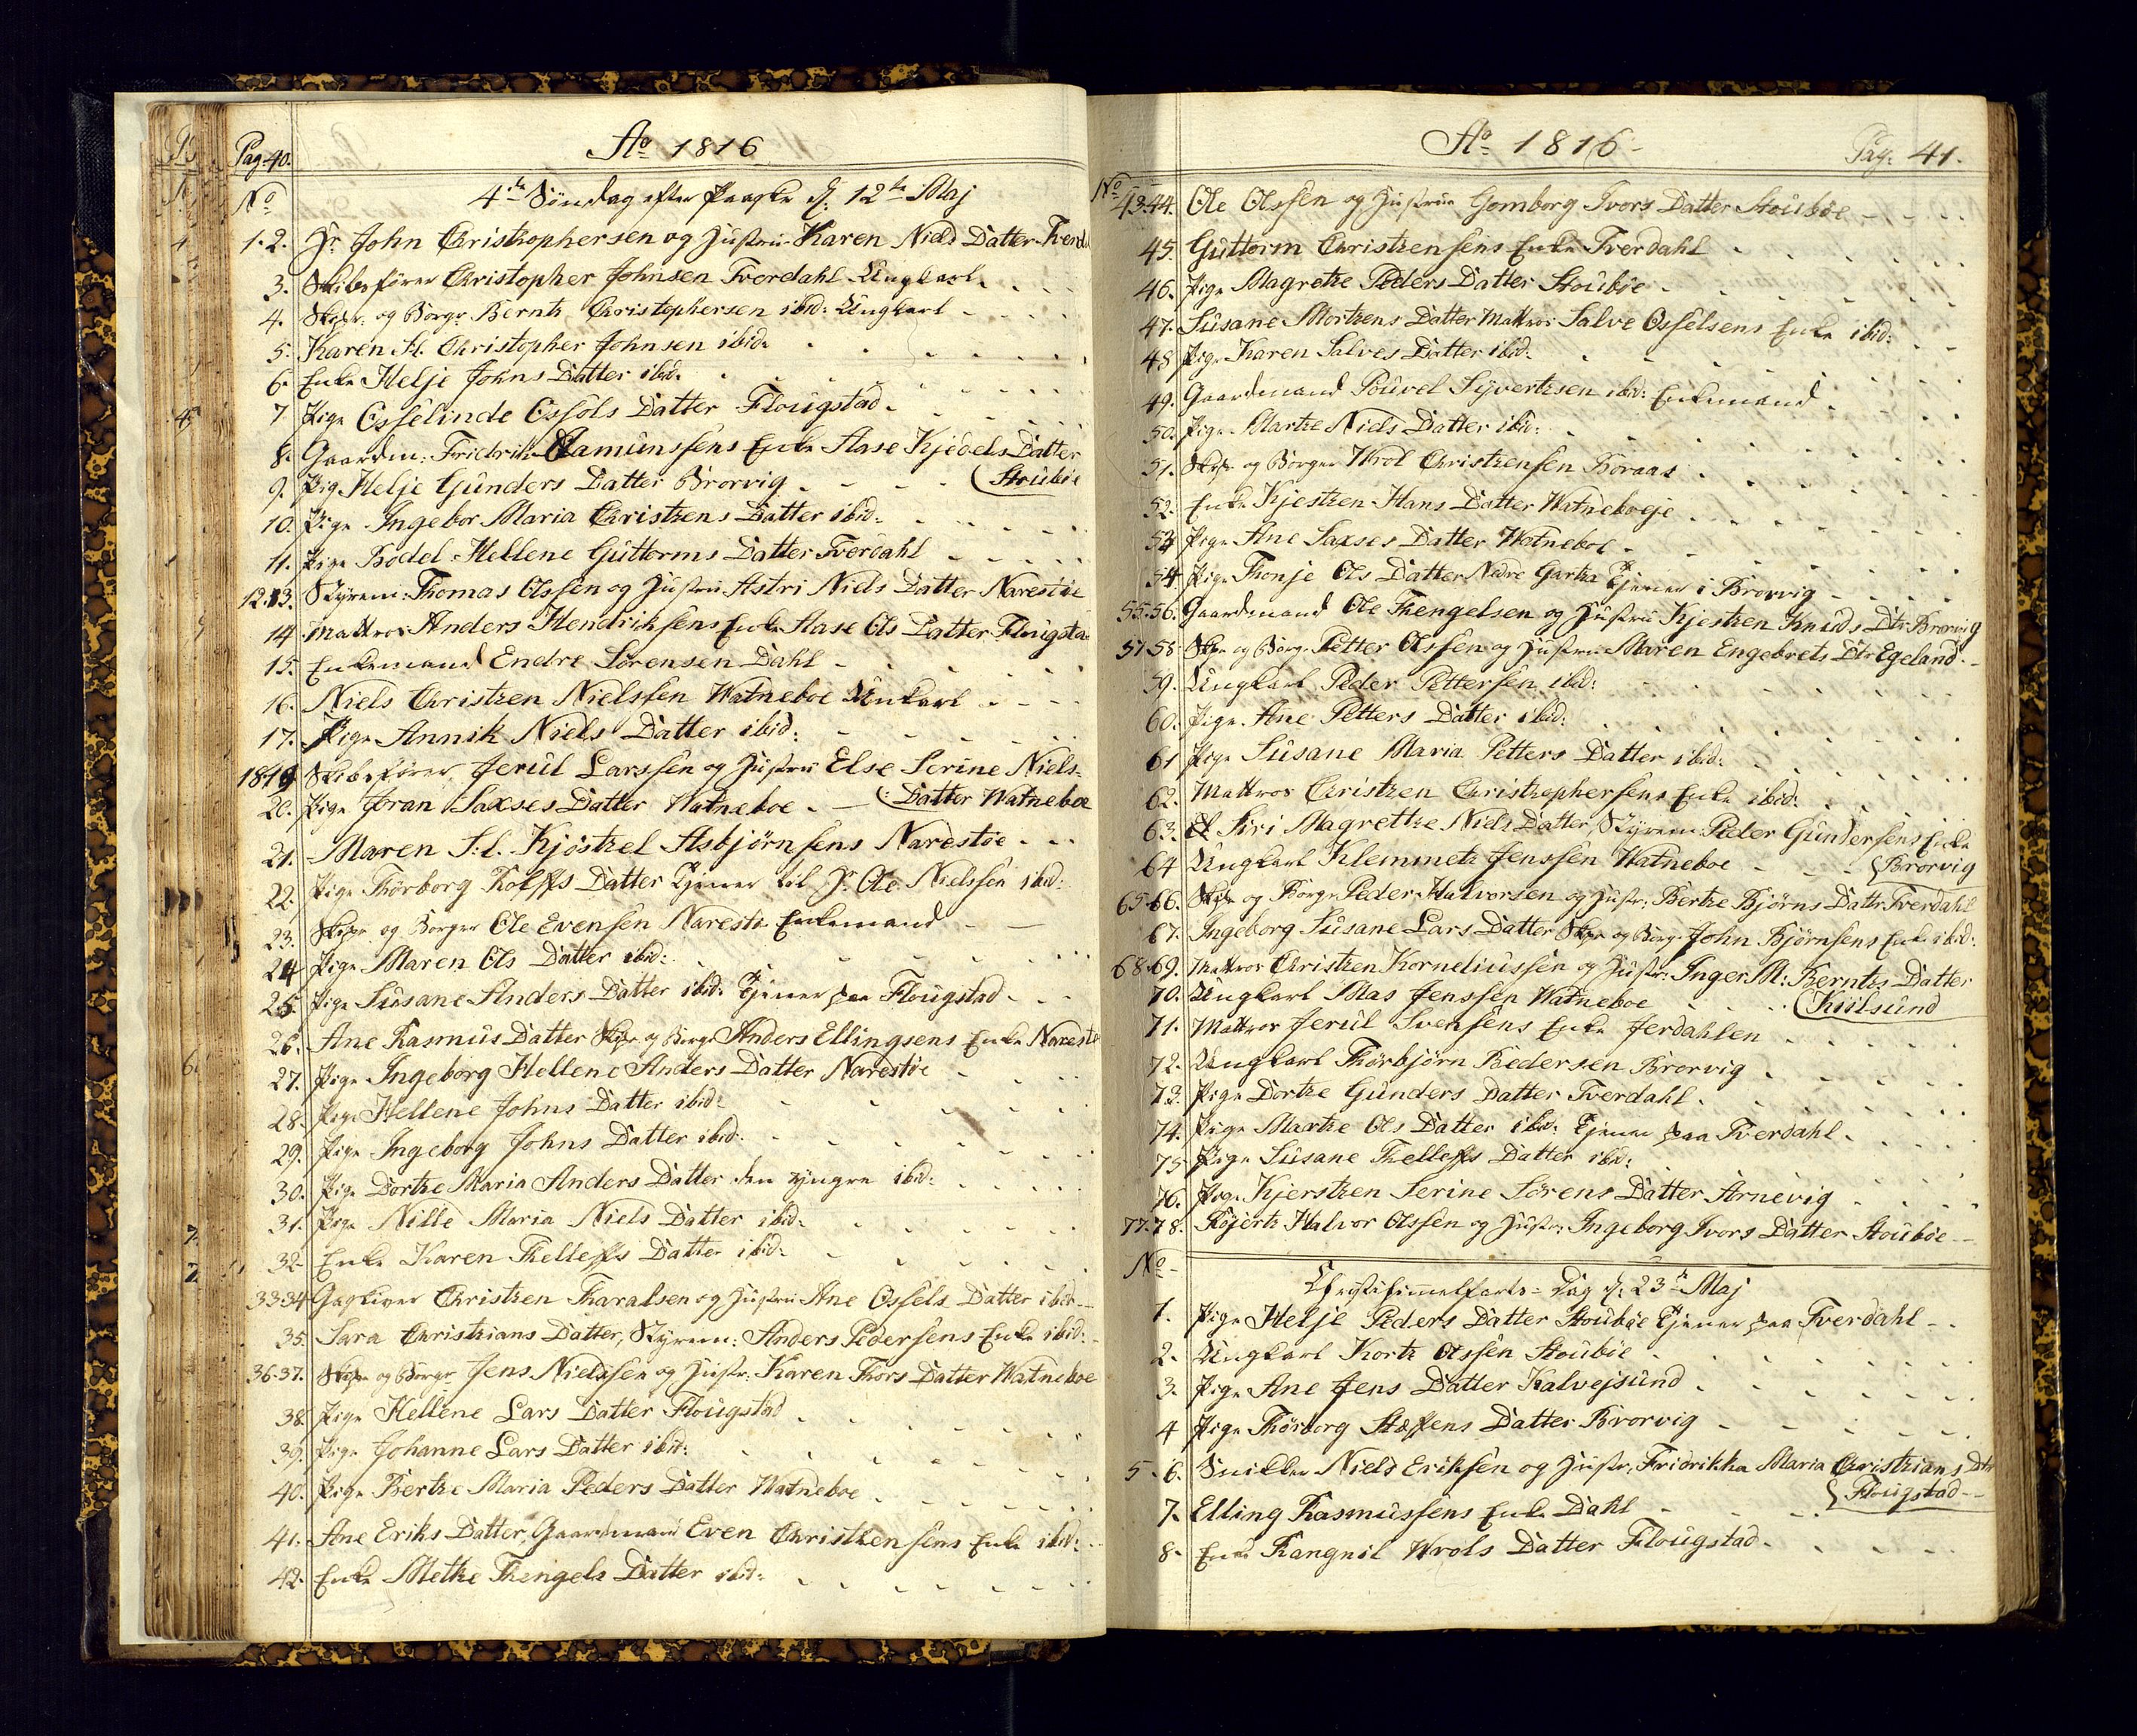 Pag. 40.
Ao 1816
No
4de Søndag efter Paaske d. 12te Maj
1.2. Hr John Christophersen og Hustrue Karen Niels Datter Tverd
3. Skibsfører Christopher Johnsen Tverdahl Ungkarl
4. Skipr og Borgr Bernt Christophersen ibid: Ungkarl
5. Karen Sl. Christopher Johnsen ibid:
6. Enke Helje Johns Datter ibid:
7. Pige Osselinde Ossols Datter Flougstad
8. Gaardm: Fridrik Aamunssens Enke Aase Kjedels Datter
(Stoubøe
9. Pig Helje Gunders Datter Brorvig
10. Pige Ingebor Maria Christens Datter ibid:
11. Pige Bodel Hellene Guttorms Datter Tverdahl
12.13. Styrm: Thomas Olssen og Hustru Astri Niels Datter Narestøe
14. Mattros Anders Hendriksens Enke Aase Ols Datter Flougsta
15. Enkemand Endre Sørensen Dahl
16. Niels Christen Nielssen Watneboe Unkarl
17. Pige Annik Niels Datter ibid:
18.19 Skibsfører Jerul Larssen og Hustru Else Serine Niels-
(: Datter Watneboe
20. Pige Joran Saxses Datter Watneboe
21. Maren S:l. Kjøstel Asbjørnsens Narestøe
22. Pige Thorborg Rolffs Datter Tjener til Hr Ole Nielssen ibid:
23. Skipr og Borger Ole Evensen Narestø Enkemand
24 Pige Maren Ols Datter ibid:
25. Pige Susane Anders Datter ibid: Tjener paa Flougstad
26. Ane Rasmus Datter Skipr og Borgr Anders Ellingsens Enke Narestø
27. Pige Ingeborg Hellene Anders Datter Narestøe
28. Pige Hellene Johns Datter ibid:
29. Pige Ingeborg Johns Datter ibid:
30. Pige Dortre Maria Anders Datter den yngre ibid:
31. Pige Nille Maria Niels Datter ibid:
32. Enke Karen Thelleffs Datter ibid:
33.34 Christen Tharalsen og Hustru Ane Ossels Datter ibid:
35. Sara Christians Datter, Styrm: Anders Pedersens Enke ibid:
36.37. Skipr og Borgr Jens Nielssen og Hustr: Karen Thors Datter Watneboe
38. Pige Hellene Lars Datter Flougstad
39. Pige Johanne Lars Datter ibid:
40. Pige Berthe Maria Peders Datter Watneboe
41. Ane Eriks Datter, Gaardmand Even Christensens Enke ibid:
42. Enke Methe Thengels Datter ibid:
Ao 1816
Pag. 41.
No
43.44. Ole Olssen og Hustrue Gomborg Ivors Datter Stoubøe
45. Guttorm Christensens Enke Tverdahl
46. Pige Magrethe Peders Datter Stoubøe
47. Susane Mortens Datter Mattros Salve Osselsens Enke ibid:
48 Pige Karen Salves Datter ibid:
49. Gaardmand Pouvel Syvertsen ibid: Enkemand
50. Pige Marthe Niels Datter ibid:
51. Skipr og Borger Wrol Christensen Boraas
52. Enke Kjesten Hans Datter Watneboeje
53 Pige Ane Saxses Datter Watneboe
54 Pige Thonje Ols Datter Nedre Garta Tjener i Brorvig
55.56. Gaardmand Ole Thengelsen og Hustru Kjesten Knuds Dtr Brorvig
57.58. Skipr og Borgr Petter Olssen og Hustru Maren Engebrets Dtr Egeland
59. Ungkarl Peder Pettersen ibid:
60. Pige Ane Petters Datter ibid:
61 Pige Susane Maria Petters Datter ibid:
62. Mattros Christen Christophersens Enke ibid:
63. Siri Magrethe Niels Datter, Styrm: Peder Gundersens Enke
(Brorvig
64 Ungkarl Klemmet Jenssen Watneboe
65.66. Skipr og Borgr Peder Halvorsen og Hustr: Berthe Bjørns Datter Tverdahl
67. Ingeborg Susane Lars Datter Skipr og Borgr John Bjørnsens Enke ibid:
68.69. Mattros Christen Korneliussen og Hustr: Inger M: Bernts Datter
(Kiilsund
70. Ungkarl Mas Jenssen Watneboe
71. Mattros Jerul Svensens Enke Jerdahlen
72. Ungkarl Thorbjørn Pedersen Brorvig
73. Pige Dorthe Gunders Datter Tverdahl
74. Pige Marthe Ols Datter ibid: Tjener paa Tverdahl
75 Pige Susane Thelleffs Datter ibid:
76. Pige Kjersten Serine Sørens Datter Arnevig
77.78. Halvor Olssen og Hustr: Ingeborg Ivors Datter Stoubøe
No
Christihimmelfarts-Dag d: 23de Maj
1. Pige Helje Peders Datter Stoubøe Tjener paa Tverdahl
2. Ungkarl Kort Olssen Stoubøe
3. Pige Ane Jens Datter Kalvejsund
4 Pige Thorborg Steffens Datter Brorvig
5.6. Snikker Niels Eriksen og Hustr: Fridrikka Maria Christians Dtr
(Flougstad
7. Elling Rasmussens Enke Dahl
8. Enke Rangnil Wrols Datter Flougstad